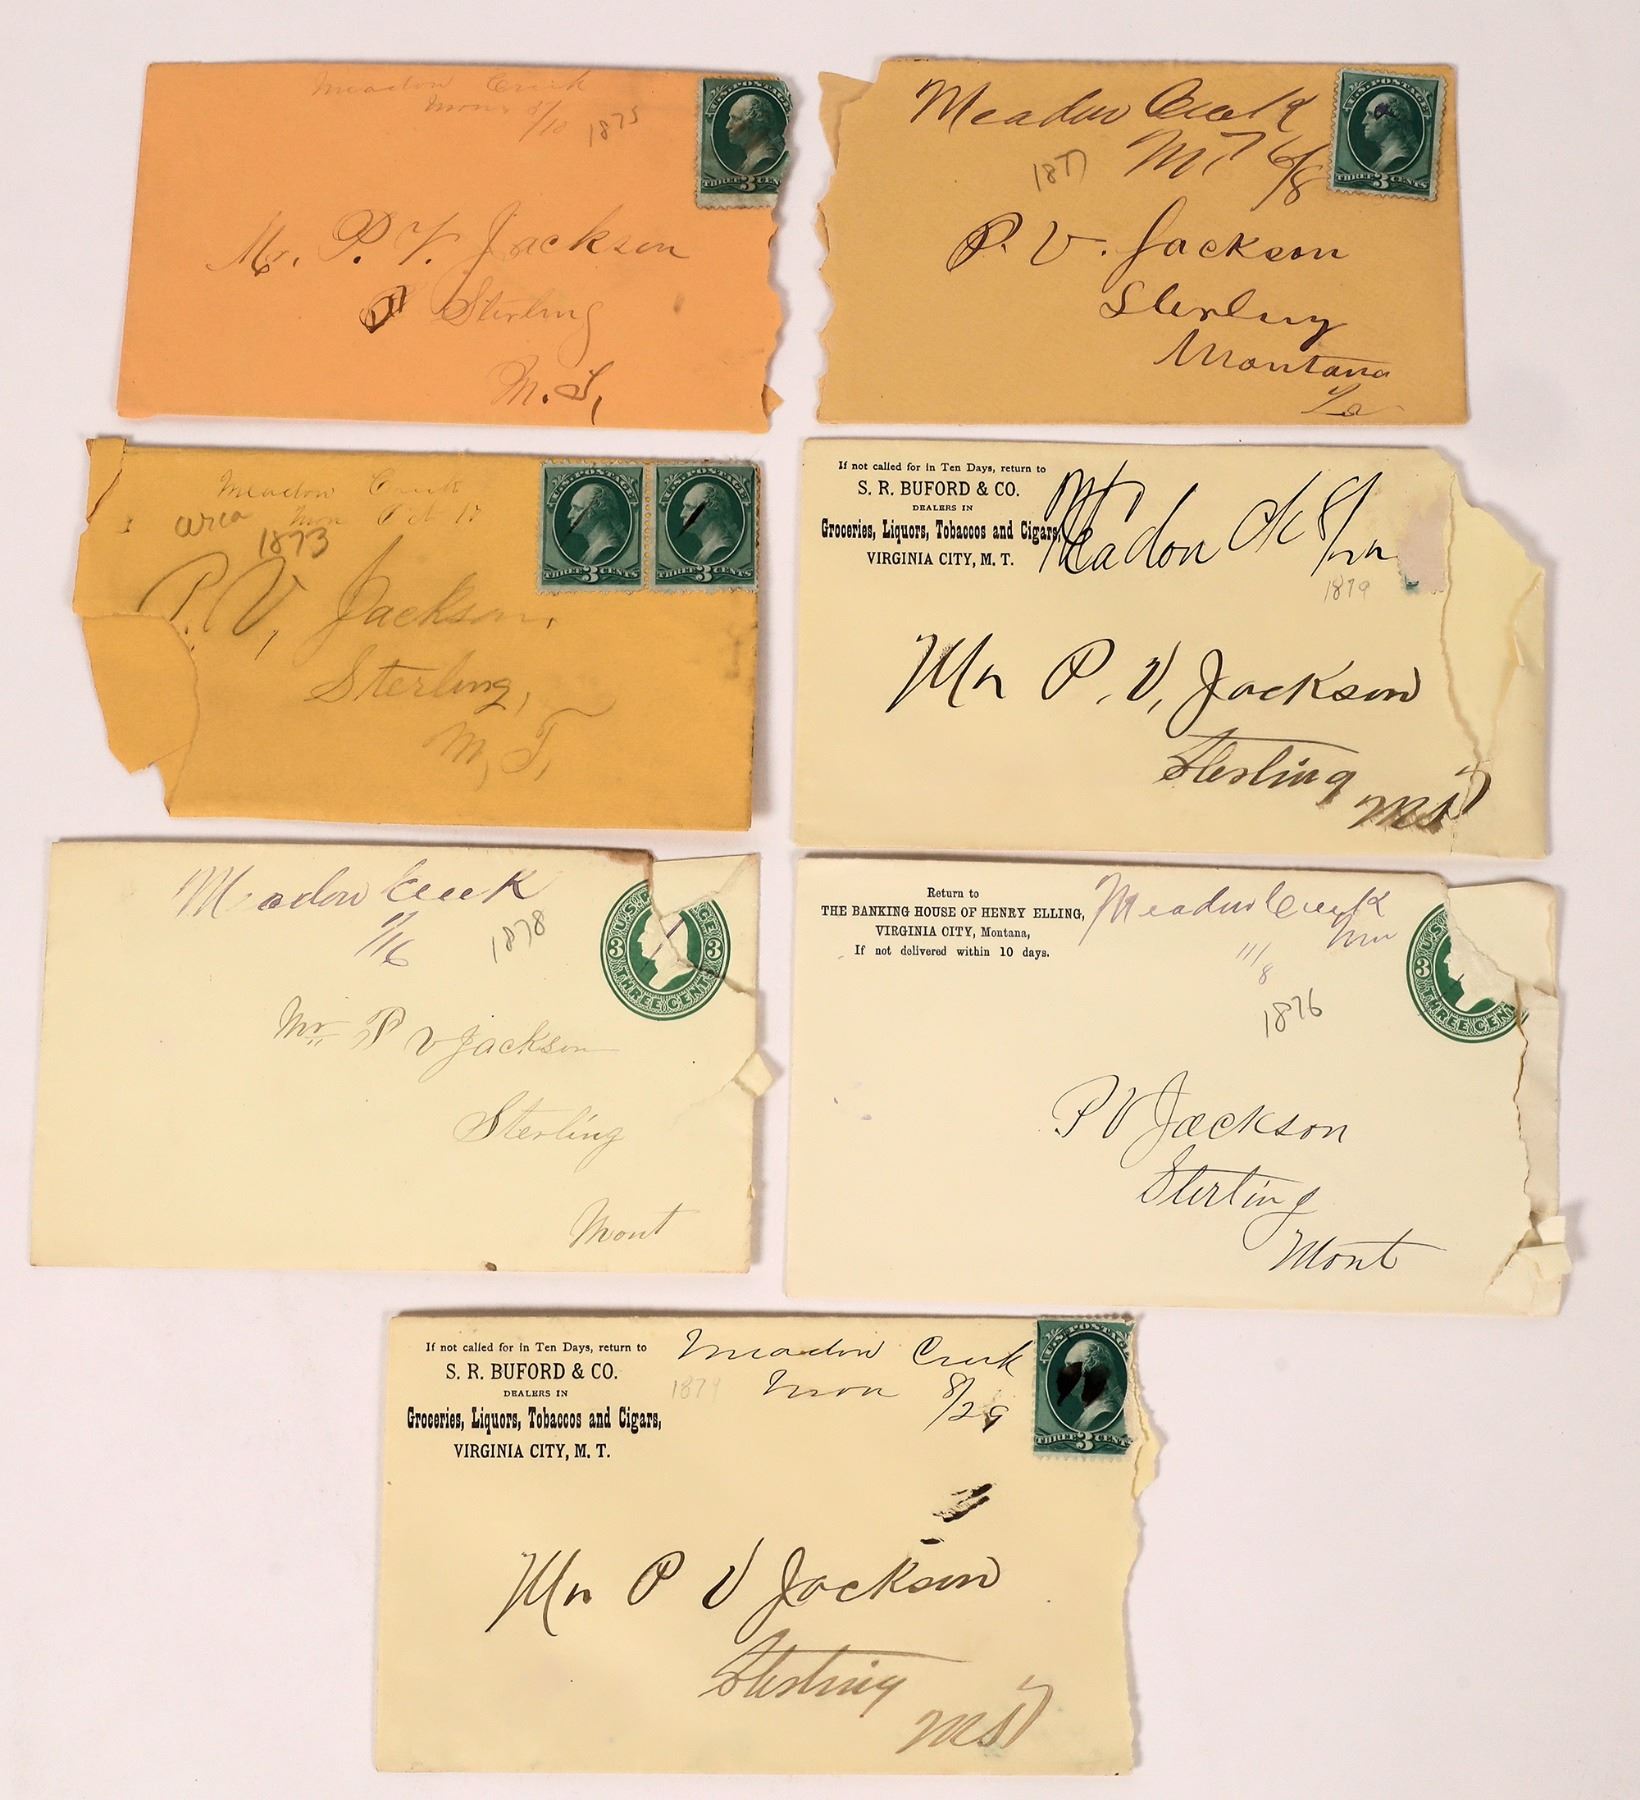 Meadow Creek
Mon 8/10
1875
U.S. POSTAGE
THREE 3 CENTS
Mr. P. V. Jackson
Sterling
M. T,
Meadow Creek
M T 6/8
1877
U.S. POSTAGE
THREE 3 CENTS
P. V. Jackson
Sterling
Montana
Meadow Creek
Mon Oct 17
circa
1873
U.S. POSTAGE
THREE 3 CENTS
U.S. POSTAGE
THREE 3 CENTS
P. V, Jackson,
Sterling,
M, T,
If not called for in Ten Days, return to
S. R. BUFORD & CO.
DEALERS IN
Groceries, Liquors, Tobaccos and Cigars,
VIRGINIA CITY, M. T.
Meadon Ck 8/22
1879
Mr P. V, Jackson
Sterling
Meadow Creek
1/16
1878
U.S. POSTAGE
3 3
THREE CENTS
Mr P V Jackson
Sterling
Mont
Return to
THE BANKING HOUSE OF HENRY ELLING,
VIRGINIA CITY, Montana,
If not delivered within 10 days.
Meadow Creek
Mon
11/8
1876
U.S.
3
THREE CENT
P V Jackson
Sterling
Mont
If not called for in Ten Days, return to
S. R. BUFORD & CO.
DEALERS IN
Groceries, Liquors, Tobaccos and Cigars,
VIRGINIA CITY, M. T.
Meadow Creek
Mon 8/29
1879
U.S. POSTAGE
THREE 3 CENTS
Mr P V Jackson
Sterling